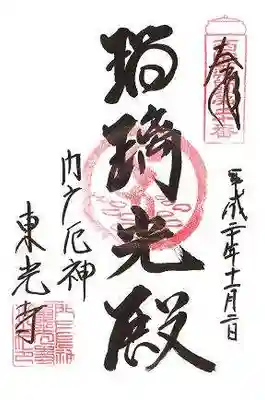 奉拝
平成 年十一月二日
瑠璃光殿
門戸厄神
東光寺